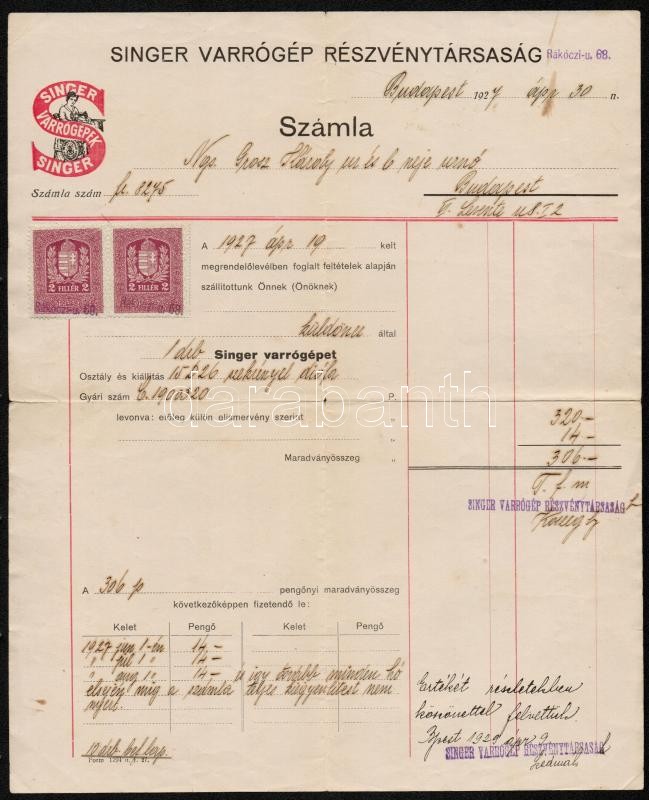 SINGER VARRÓGÉP RÉSZVÉNYTÁRSASÁG Rákóczi-u. 68.
Budapest 1927 ápr 30 n.
SINGER
VARRÓGÉPEK
SINGER
Számla
Ngs. Grosz Károly ur és b. neje urnő
Számla szám fr. 8275
Budapest
u 8. I 2
2 FILLÉR 2
2 FILLÉR 2
Rákóczi-u. 68.
Rákóczi-u. 68.
A 1927 ápr 19 kelt
megrendelőlevélben foglalt feltételek alapján
szállitottunk Önnek (Önöknek)
küldönce által
1 drb Singer varrógépet
Osztály és kiállitás 15 B26 szekrényel diófa
Gyári szám C.1900320 P.
levonva: előleg külön elismervény szerint „
Maradványösszeg „
320-
14-
306-
T. f. m
SINGER VARRÓGÉP RÉSZVÉNYTÁRSASÁG
darabanth
A 306 p pengőnyi maradványösszeg
következőképpen fizetendő le:
Kelet Pengő Kelet Pengő
1927 jun 1-én 14.-
" jul 1 " 14-
" aug 1 " 14- és igy tovább minden hó
elsején mig a számla teljes kiegyenlitést nem
nyert.
Form 1294 a. f. 27.
Értékét részletekben
köszönettel felvettük
Bpest 1929 apr 9.
SINGER VARRÓGÉP RÉSZVÉNYTÁRSASÁG